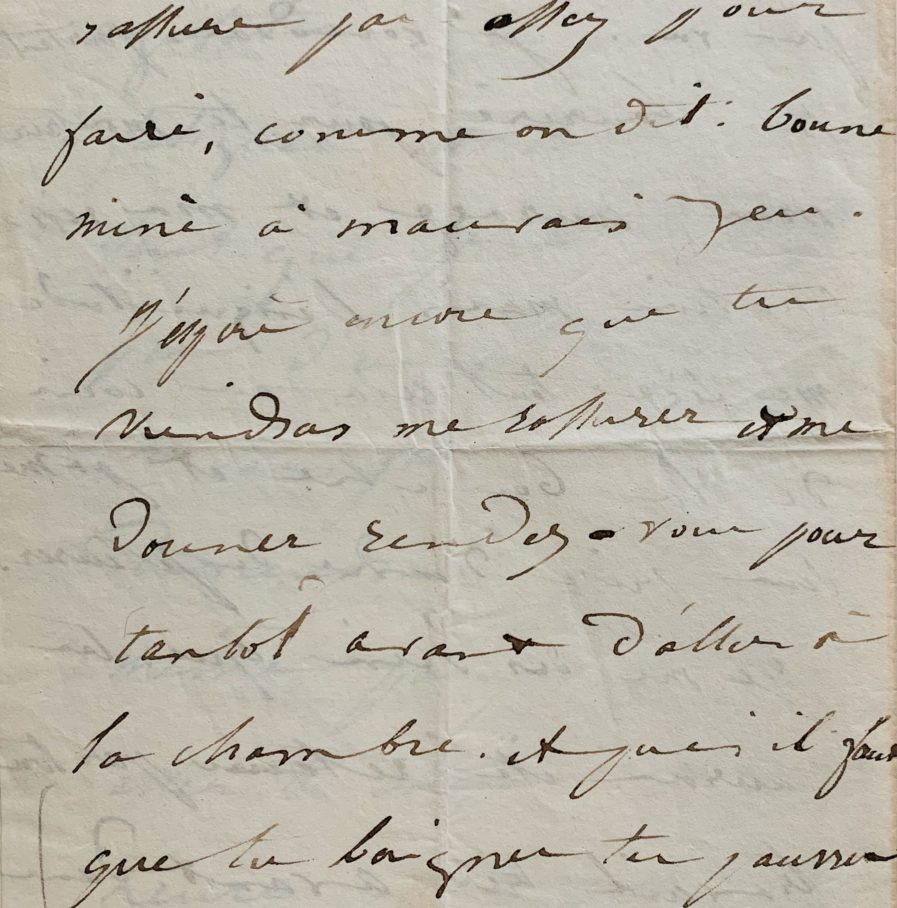 rassure pas assez pour
faire, comme on dit : bonne
mine à mauvais jeu.
J'espère encore que tu
viendras me rassurer et me
donner rendez-vous pour
tantôt avant d'aller à
la chambre. et puis il faut
que tu baignes tes pauvres